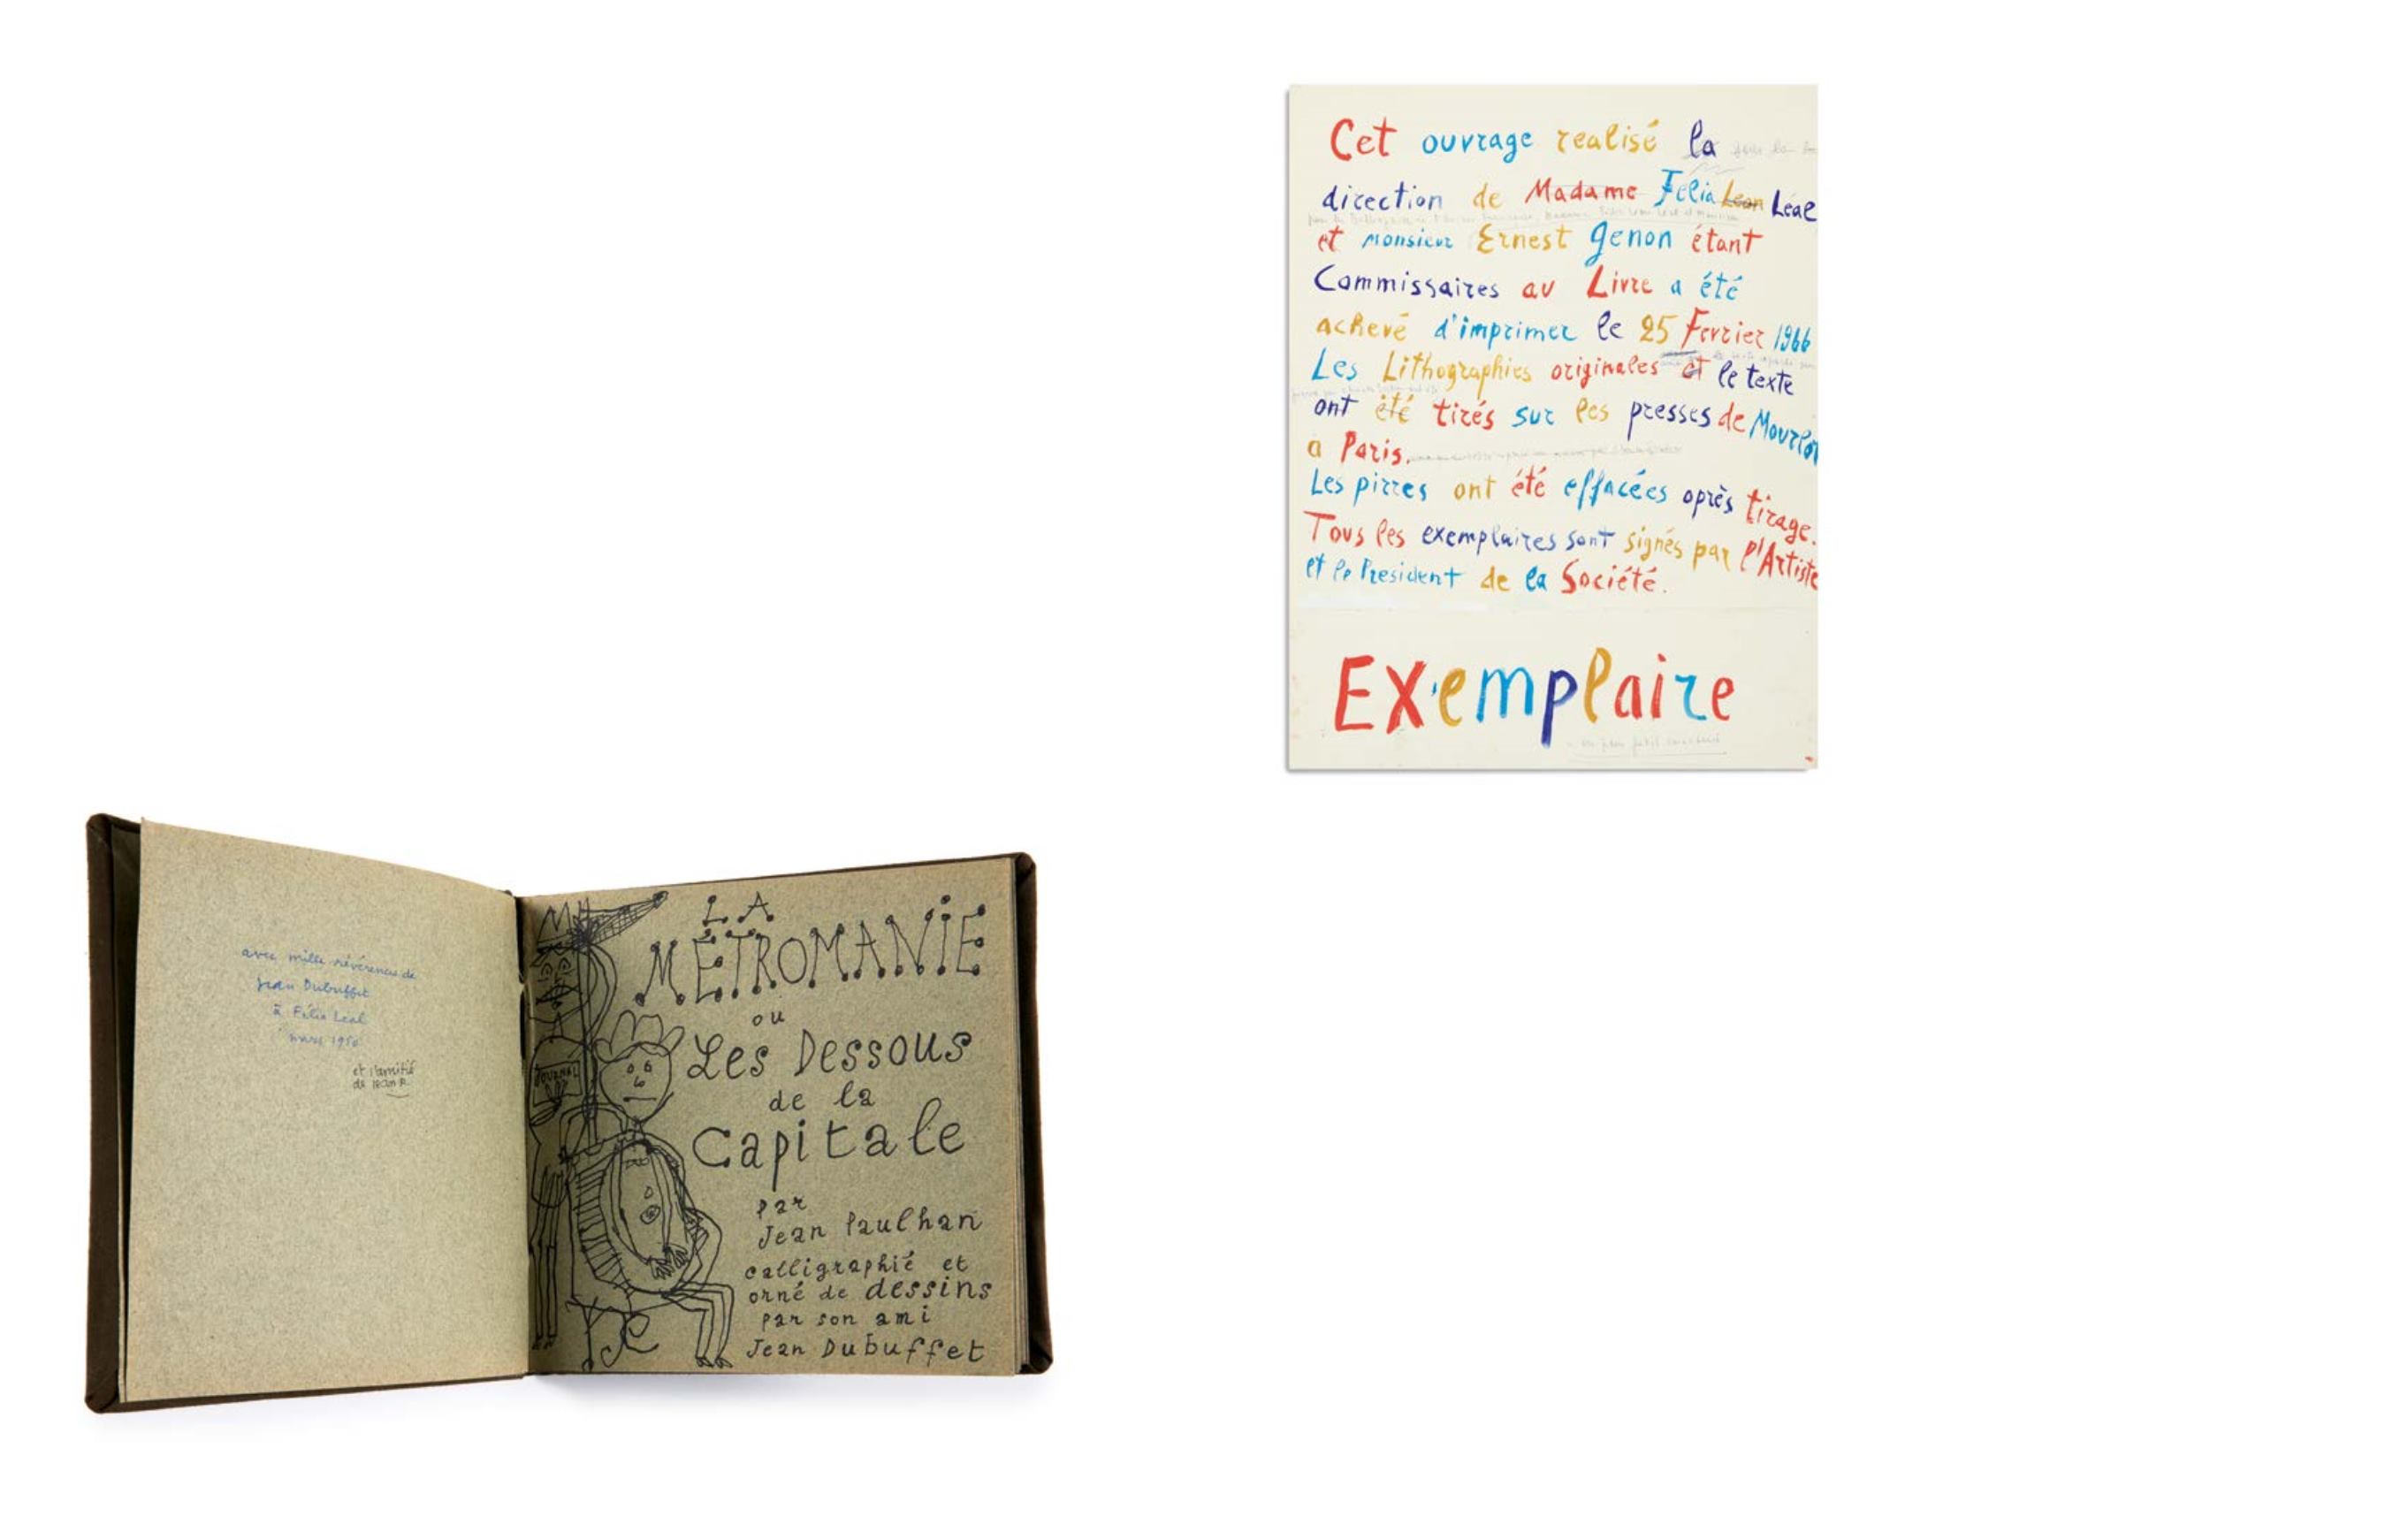 Cet ouvrage realisé la
direction de Madame Félia Leon Léal
et Monsieur Ernest Genon étant
Commissaires au Livre a été
achevé d'imprimer le 25 Fevrier 1966
Les Lithographies originales et le texte
ont été tirés sur les presses de Mourlot
a Paris.
Les pirres ont été effacées après tirage.
Tous les exemplaires sont signés par l'Artiste
et le President de la Société.
EXemplaire
avec mille révérences de
Jean Dubuffet
à Félia Leal
mars 1950
et l'amitié
de Jean P.
LA
MÉTROMANiE
ou
Les Dessous
de la
Capitale
par
Jean Paulhan
calligraphié et
orné de dessins
par son ami
Jean Dubuffet
JOURNAL